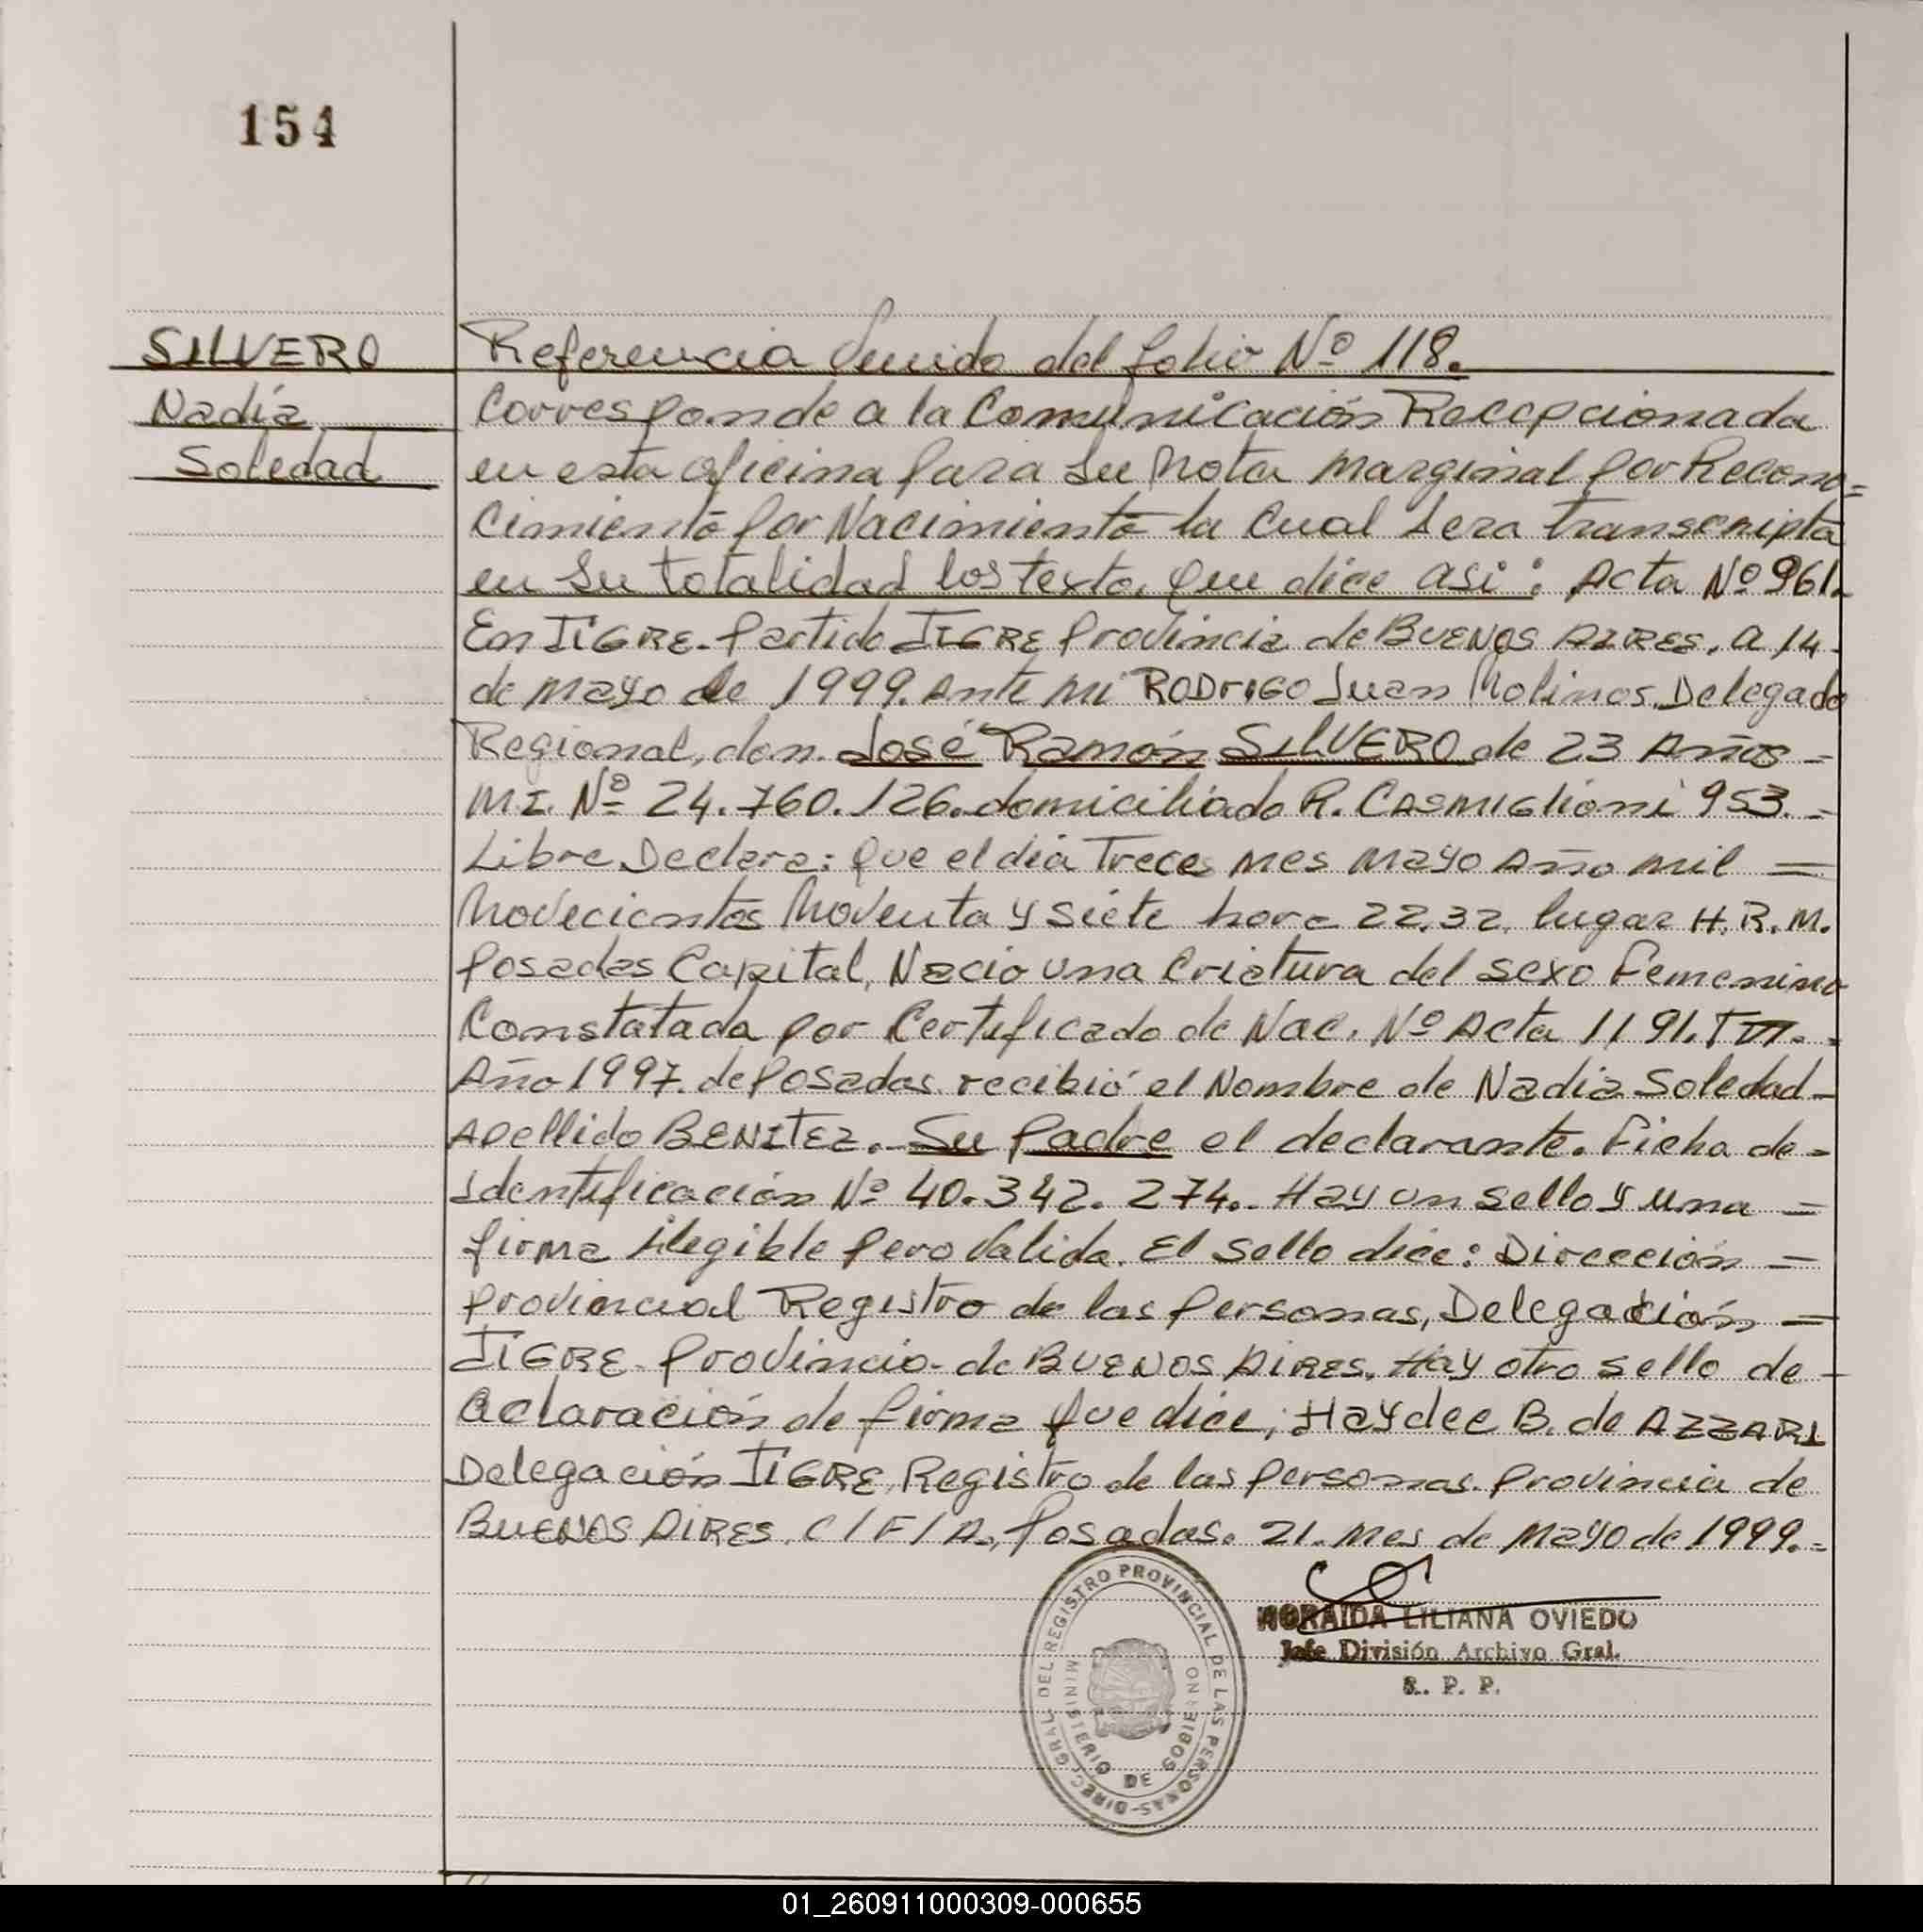 154
SILVERO
Nadia
Soledad
Referencia Venido del folio Nº 118.
Corresponde a la Comunicación Recepcionada
en esta oficina para su Nota marginal por Recono=
cimiento por Nacimiento la Cual sera transcripta
en su totalidad los texto, que dice asi: Acta Nº 961.-
En TIGRE. Partido TIGRE Provincia de BUENOS AIRES, a 14-
de mayo de 1999. Ante mi RODRIGO Juan Molinos. Delegado
Regional, don. José Ramón SILVERO de 23 Años =
M.I. Nº 24.760.126. domiciliado R. CASMIGlioni 953. =
Libre Declara: que el dia Trece mes mayo Año mil =
Novecientos Noventa y siete hora 22,32. lugar H.R.M.
Posadas Capital, Nacio una Criatura del sexo Femenino
Constatada por Certificado de Nac. Nº Acta 1191. T
Año 1997. de Posadas. recibió el Nombre de Nadia Soledad-
Apellido BENITEZ. Su Padre el declarante. Ficha de=
Identificación Nº 40.342.274.- Hay un sello y una =
firma ilegible pero Valida. El Sello dice: Dirección =
Provincial Registro de las Personas, Delegación =
TIGRE- Provincia- de BUENOS AIRES. Hay otro sello de-
Aclaración de firma que dice; Haydee B. de AZZARI
Delegación TIGRE, Registro de las personas. Provincia de
BUENOS AIRES. C/F/A., Posadas. 21. mes de mayo de 1999.=
DIREC. GRAL. DEL REGISTRO PROVINCIAL DE LAS PERSONAS-
MINISTERIO DE GOBIERNO
NORAIDA LILIANA OVIEDO
Jefe División Archivo Gral.
R. P. P.
01_260911000309-000655